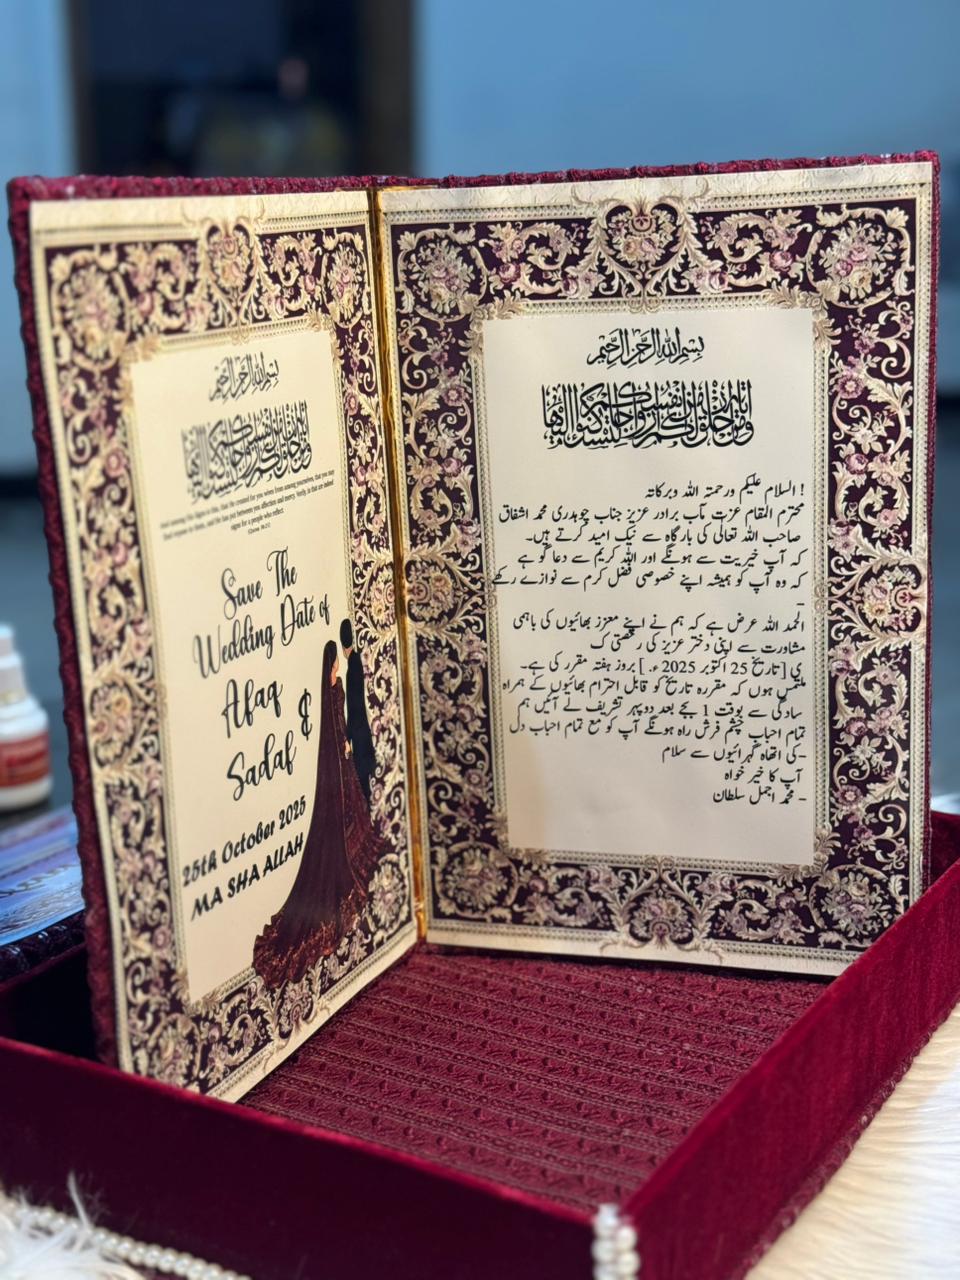 بسم الله الرحمن الرحيم
ومن آياته أن خلق لكم من أنفسكم أزواجا لتسكنوا إليها
And among His Signs is this, that He created for you wives from among yourselves, that you may
find repose in them, and He has put between you affection and mercy. Verily, in that are indeed
signs for a people who reflect
Save The
Wedding Date of
Afaq
&
Sadaf
25th October 2025
MA SHA ALLAH
بسم الله الرحمن الرحيم
ومن آياته أن خلق لكم من أنفسكم أزواجا لتسكنوا إليها
! السلام علیکم ورحمتہ اللہ وبرکاتہ
محترم المقام عزت مآب برادر عزیز جناب چوہدری محمد اشفاق
صاحب اللہ تعالٰی کی بارگاہ سے نیک امید کرتے ہیں۔
کہ آپ خیریت سے ہونگے اور اللہ کریم سے دعا گو ہے
کہ وہ آپ کو ہمیشہ اپنے خصوصی فضل کرم سے نوازے رکھے
۔
الحمد اللہ عرض ہے کہ ہم نے اپنے معزز بھائیوں کی باہمی
مشاورت سے اپنی دختر عزیز کی رخصتی ک
ی [تاریخ 25 اکتوبر 2025 ء۔ ] بروز ہفتہ مقرر کی ہے۔
ملتمس ہوں کہ مقررہ تاریخ کو قابل احترام بھائیوں کے ہمراہ
سادگی سے بوقت 1 بجے بعد دوپہر تشریف لے آئیں ہم
تمام احباب چشم فرش راہ ہونگے آپ کو مع تمام احباب دل
-کی اتھاہ گہرائیوں سے سلام
آپ کا خیر خواہ
- محمد اجمل سلطان